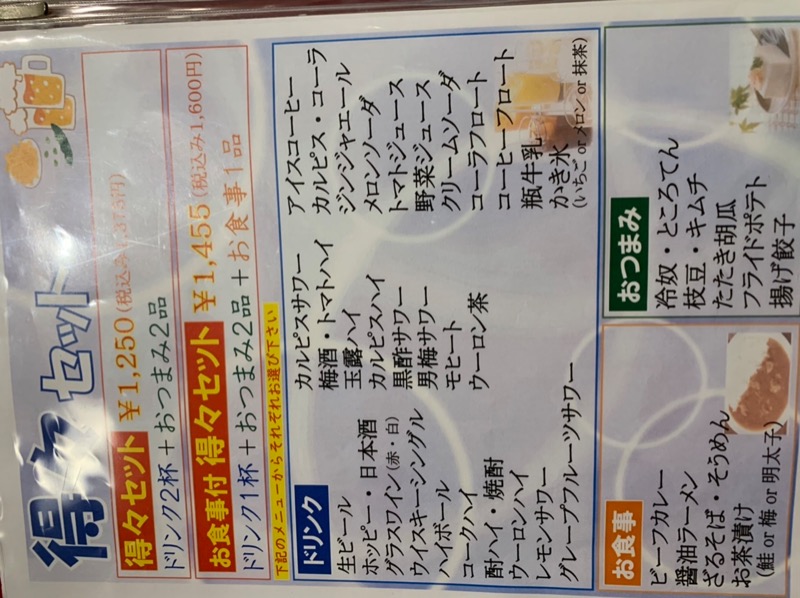 得々セット
得々セット ¥1,250(税込み1,375円)
ドリンク2杯+おつまみ2品
お食事付 得々セット ¥1,455(税込み1,600円)
ドリンク1杯+おつまみ2品+お食事1品
下記のメニューからそれぞれお選び下さい
ドリンク
生ビール
ホッピー・日本酒
グラスワイン(赤・白)
ウイスキーシングル
ハイボール
コークハイ
酎ハイ・焼酎
ウーロンハイ
レモンサワー
グレープフルーツサワー
カルピスサワー
梅酒・トマトハイ
玉露ハイ
カルピスハイ
黒酢サワー
男梅サワー
モヒート
ウーロン茶
アイスコーヒー
カルピス・コーラ
ジンジャエール
メロンソーダ
トマトジュース
野菜ジュース
クリームソーダ
コーラフロート
コーヒーフロート
瓶牛乳
かき氷
(いちご or メロン or 抹茶)
お食事
ビーフカレー
醤油ラーメン
ざるそば・そうめん
お茶漬け
(鮭 or 梅 or 明太子)
おつまみ
冷奴・ところてん
枝豆・キムチ
たたき胡瓜
フライドポテト
揚げ餃子